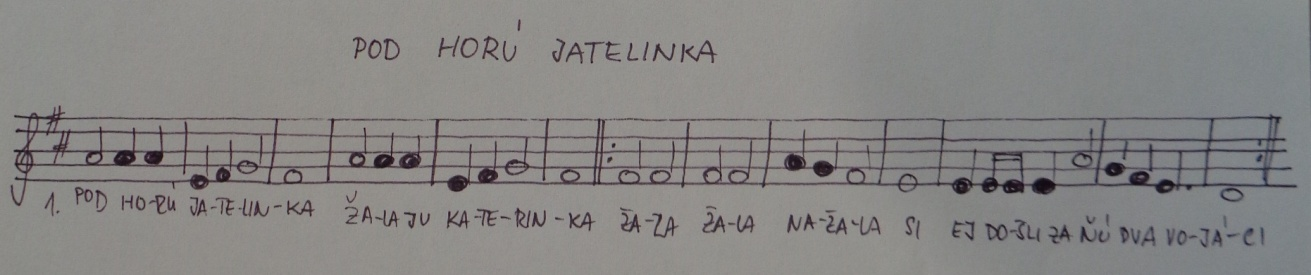 POD HORÚ JATELINKA
1. POD HO-RÚ JA-TE-LIN-KA ŽA-LA JU KA-TE-RIN-KA ŽA-ZA ŽA-LA NA-ŽA-LA SI EJ DO-ŠLI ZA ŇÚ DVA VO-JÁ-CI